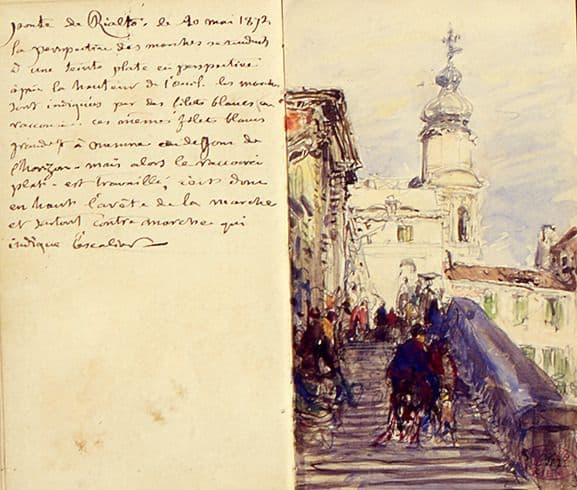 ponte de Rialto, le 20 mai 1872
la perspective des marches se réduit
à une teinte plate en perspective
à la hauteur de l'œuil. les marches
sont indiquées par des filets blancs en
raccourci. ces mêmes filets blancs
à mesure de
l'horizon mais alors le raccourci
plat est travaillé, c'est donc
en haut l'arête de la marche
et surtout contre marche qui
indique l'escalier